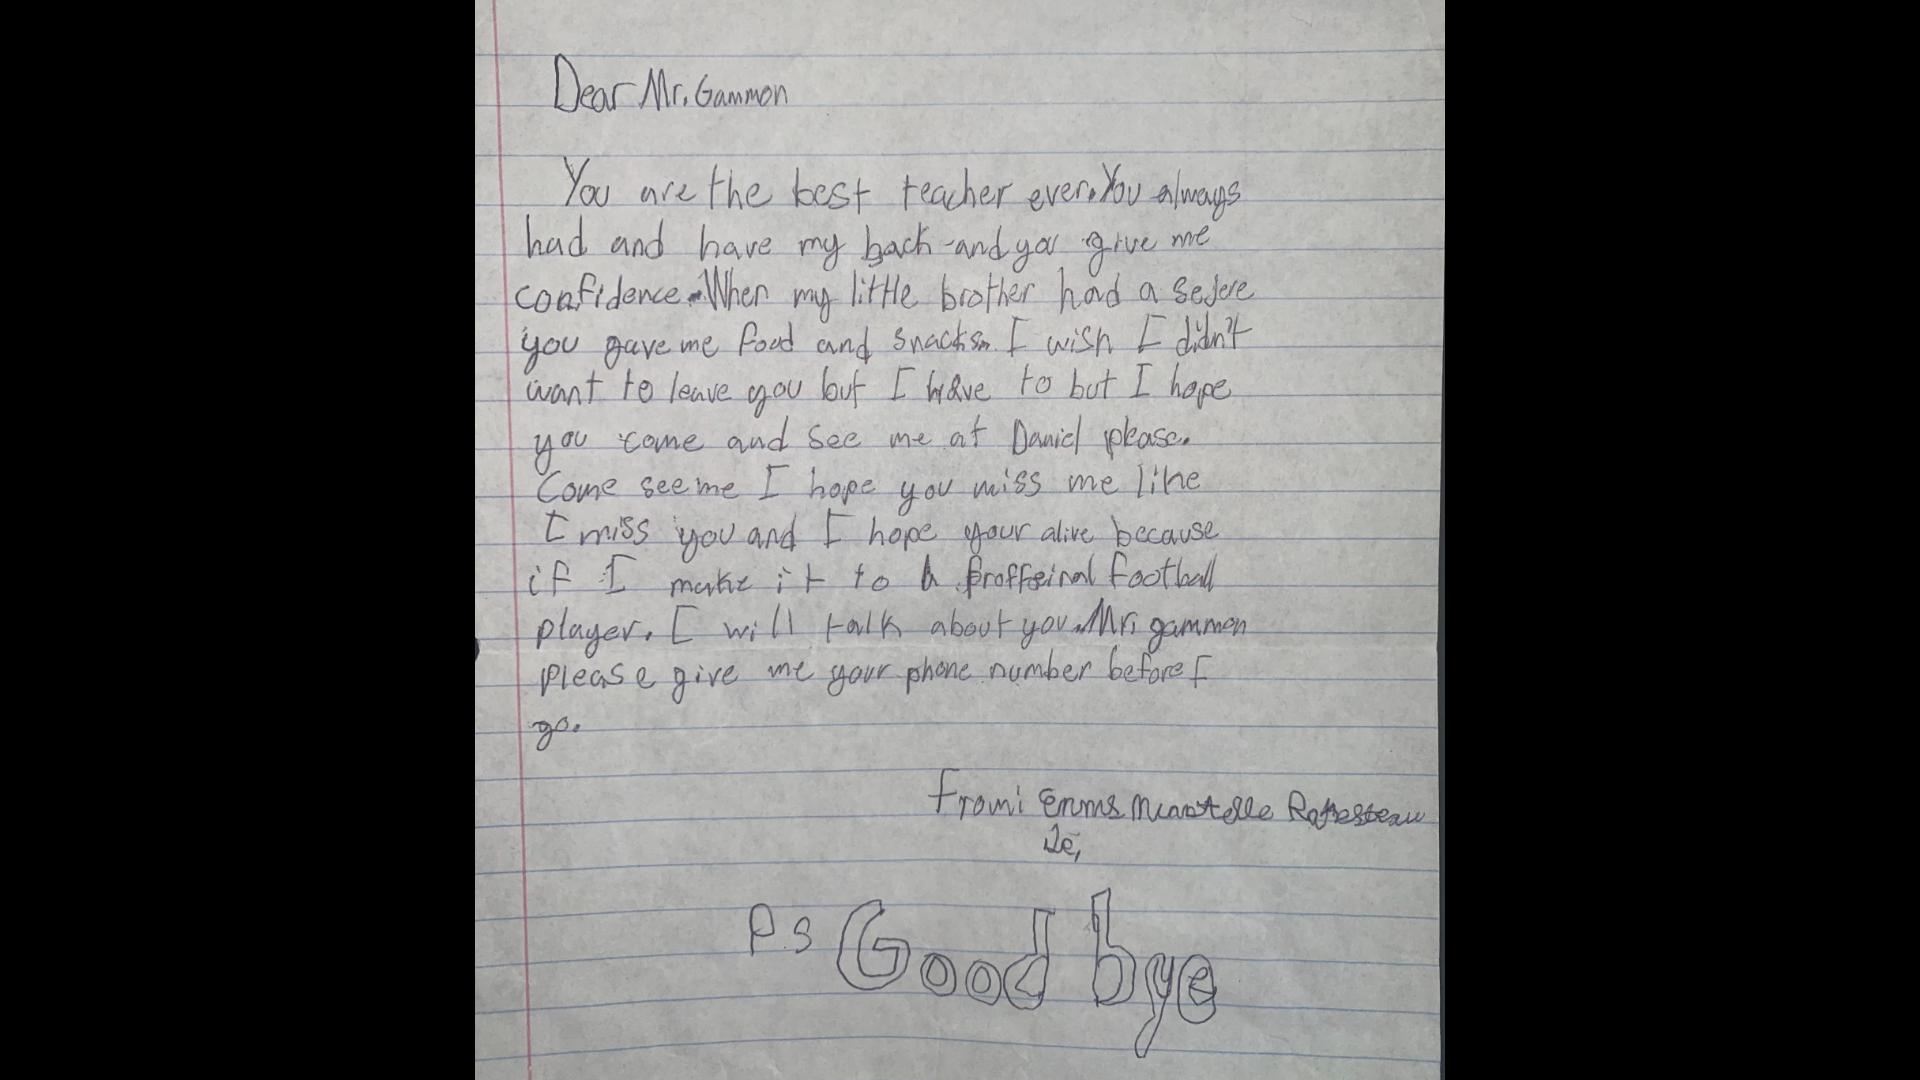 Dear Mr. Gammon
You are the best teacher ever. You always
had and have my back and you give me
confidence. When my little brother had a sejere
you gave me food and snacks. I wish I didn't
want to leave you but I have to but I hope
you come and see me at Daniel please.
Come see me I hope you miss me like
I miss you and I hope your alive because
if I make it to a proffeinal football
player. I will talk about you. Mr. gammon
please give me your phone number before I
go.
From:
Ps Good bye